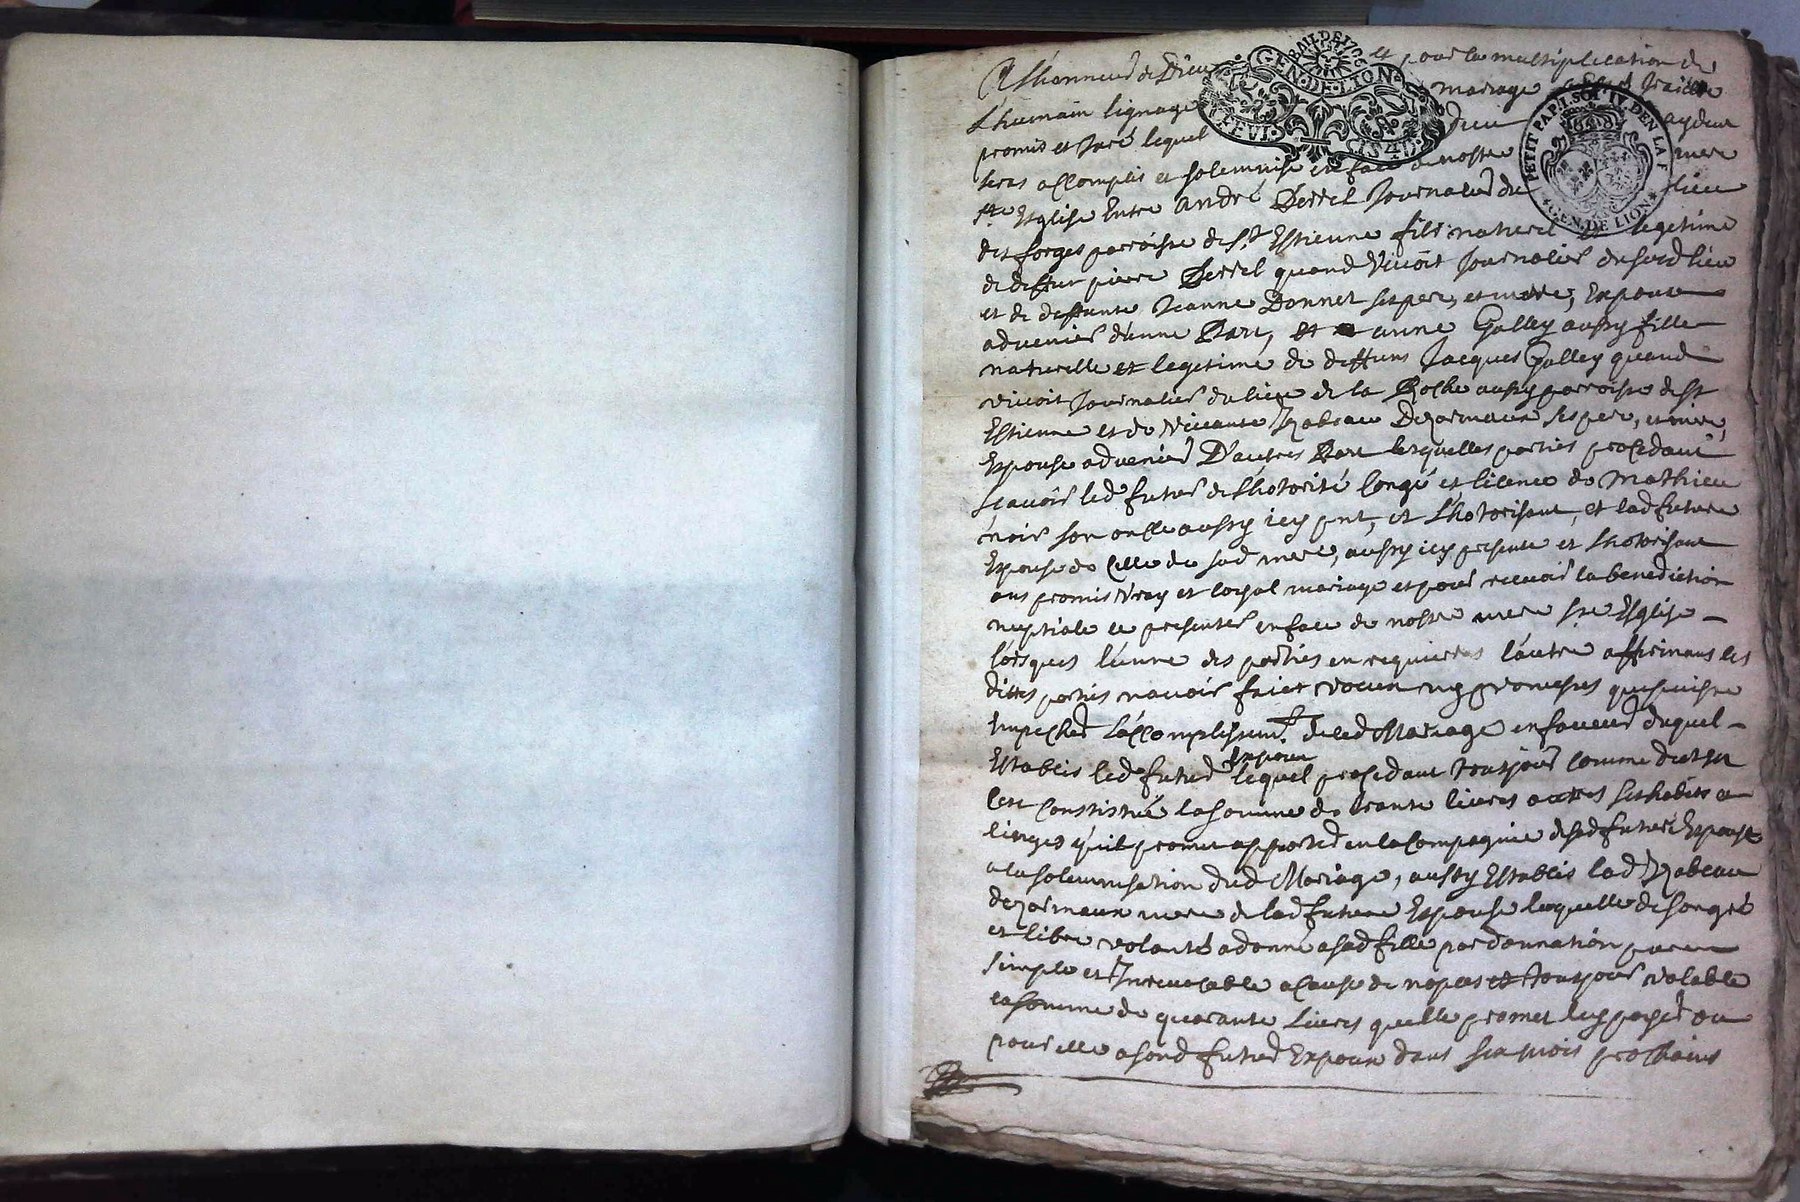 A lhonneur de Dieu et pour la multiplication de
Lhumain lignage mariage a esté traicté
promis et juré lequel Dieu aydant
sera accomplis et solemnisé en face de nostre mere
Ste Esglise Entre André Serrel Journalier du lieu
des forges parroisse de St Estienne fils naturel et legitime
de deffun pierre Serrel quand vivoit Journalier dusud lieu
et de deffunte Jeanne Bonnet ses pere, et mere, Expoux
advenir d'une Part, et anne Galley aussy fille
naturelle et legitime de deffuns Jacques Galley quand
vivoit Journalier du lieu de la Roche aussy parroisse de St
Estienne et de vivante Izabeau Dezormeaux ses pere, et mere,
Espouse advenir D'autres Part lesquelles parties procedant
scavoir led futur de lhotorité congé et licence de Mathieu
noir son oncle aussy icy pnt, et lhotorisant, et lad future
Espouse de celle de sad mere, aussy icy presente et lhotorisant
ont promis vray et loyal mariage et pour recevoir la benediction
nuptiale ce presenter en face de nostre mere ste Esglise
lorsques l'une des parties en requierera l'autre affirmans les
dittes parties n'avoir faict vocun ny promesses que puisse
Impecher l'accomplissemt. dud Mariage en faveur duquel
Establis led futur expoux lequel procedant tousjour comme dessus
cest constitué la somme de trante livres outres ses habits et
linges qu'il promet apporter en la compagnie de sad future Espouse
a la solemnisation dud Mariage, aussy Establis lad Izabeau
dezormeaux mere de lad future Espouse laquelle de son gré
et libre volonté a donné a sad fille par donnation pure
simple et Irrevocable a cause de nopces et tousjour valable
la somme de quarante livres quelle promet luy payer ou
pour elle a sond futur Expoux dans six mois prochains
GEN·DE·LION
BAIL DE 1706
PETIT PAP. I. SOL. IV. DEN LA F
GEN. DE LION